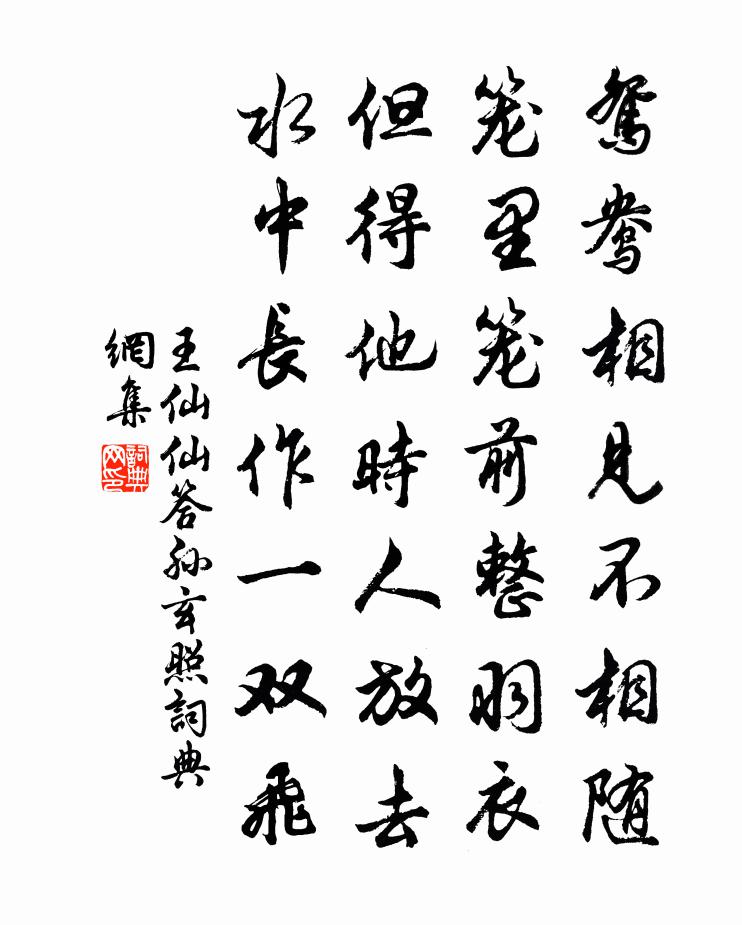 鸳鸯相見不相随
笼里笼前整羽衣
但得他時人放去
水中長作一双飛
王仙仙答孙玄照詞典
網集
詞典
网印